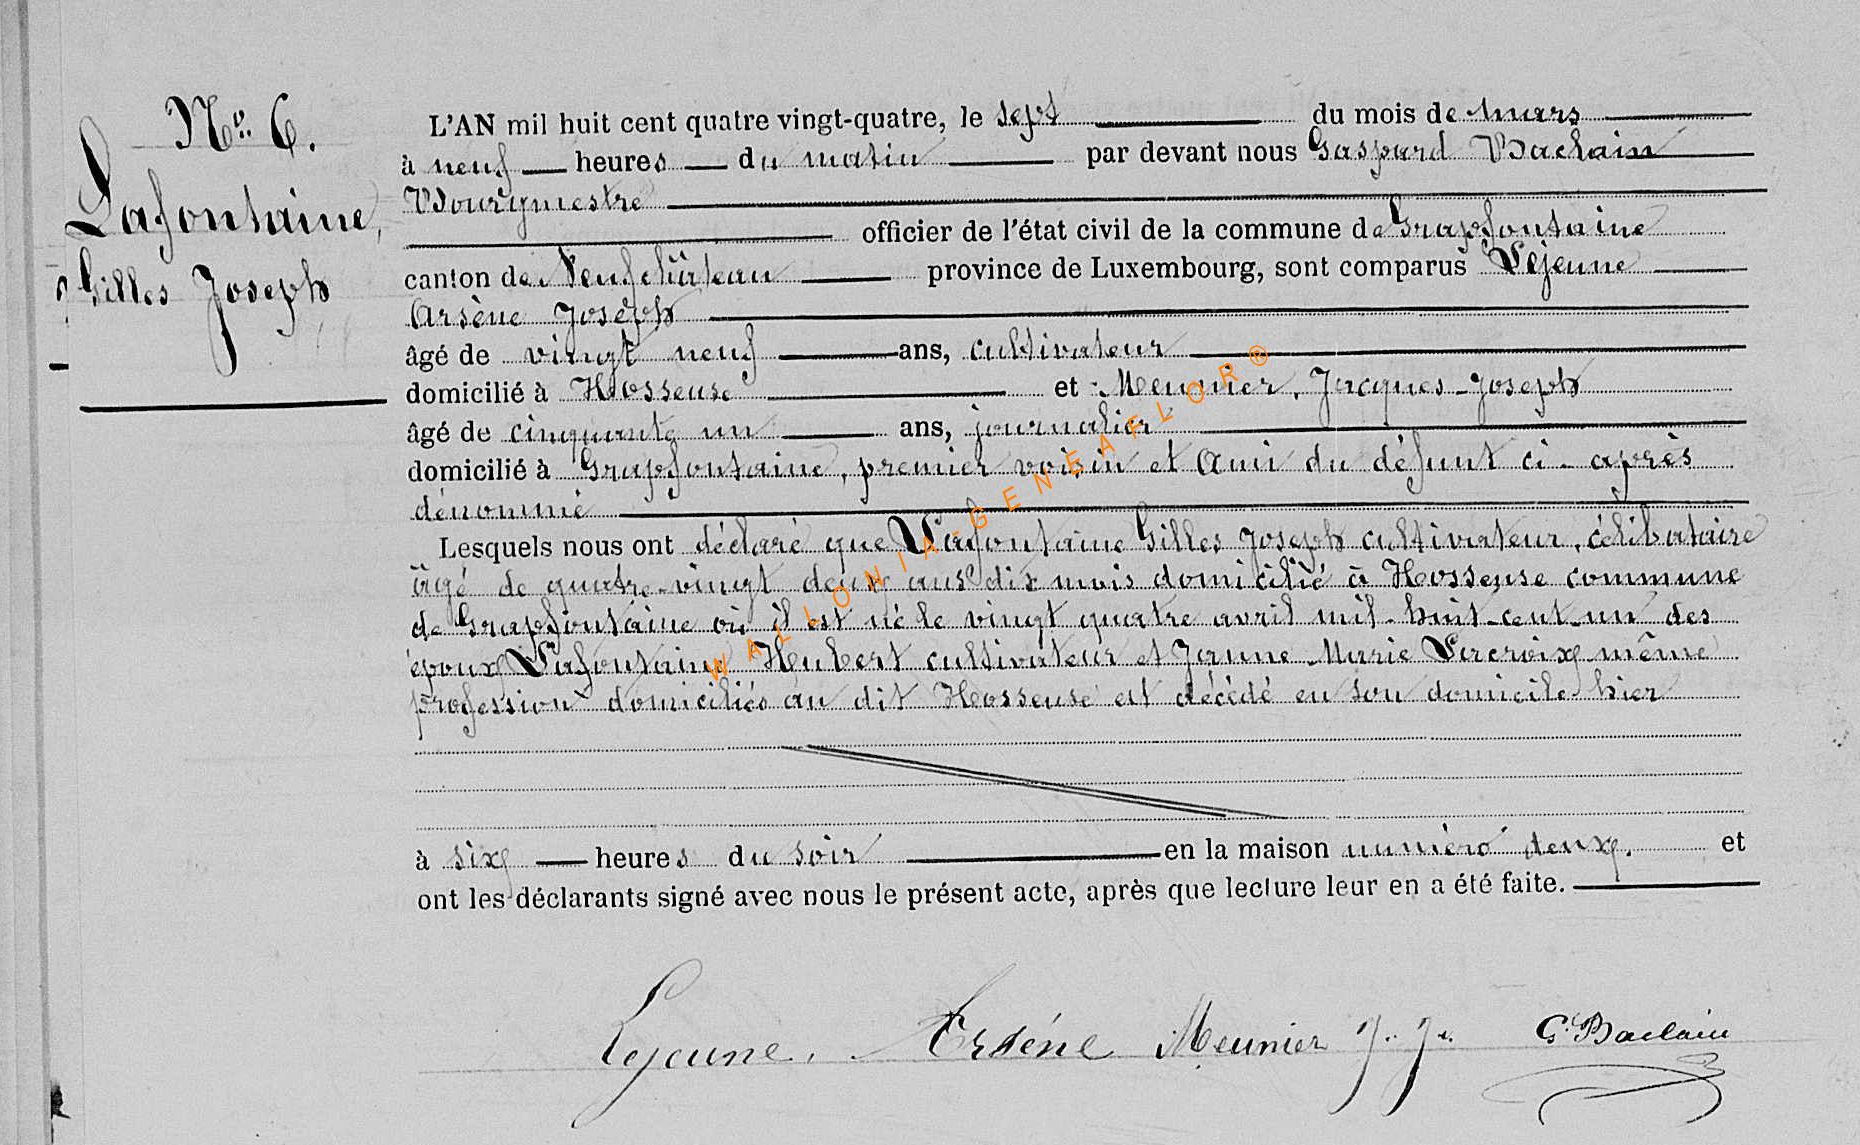 N°. 6.
Lafontaine,
Gilles Joseph
L'AN mil huit cent quatre vingt-quatre, le sept du mois de mars
à neuf heures du matin par devant nous Gaspard Baclain
Bourgmestre
officier de l'état civil de la commune de Grapfontaine
canton de Neufchâteau province de Luxembourg, sont comparus Lejeune
Arsène Joseph
âgé de vingt neuf ans, cultivateur
domicilié à Hosseuse et Meunier, Jacques-Joseph
âgé de cinquante un ans, journalier
domicilié à Grapfontaine, premier voisin et ami du défunt ci-après
dénommé
Lesquels nous ont déclaré que Lafontaine Gilles Joseph cultivateur, célibataire
âgé de quatre-vingt deux ans dix mois domicilié à Hosseuse commune
de Grapfontaine où il est né le vingt quatre avril mil-huit-cent-un des
époux Lafontaine Hubert cultivateur et Jeanne Marie Lacroix même
profession domiciliés au dit Hosseuse est décédé en son domicile hier
à six heures du soir en la maison numéro deux. et
ont les déclarants signé avec nous le présent acte, après que lecture leur en a été faite.
Lejeune, Arséne Meunier J. J. G. Baclain
WALLONIA-GENEAFLOR®